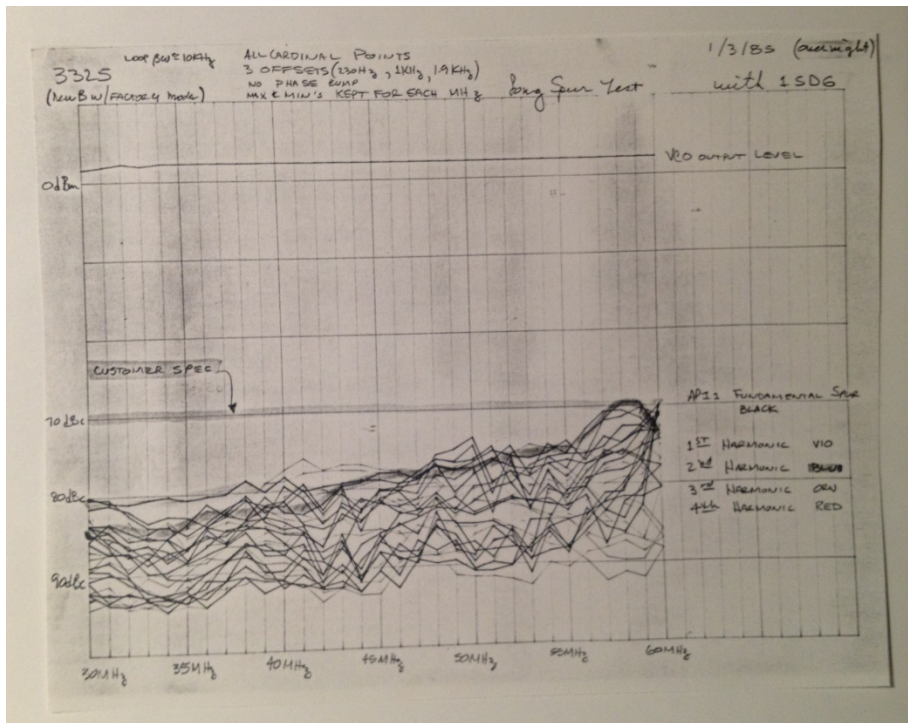 3325
LOOP BW ≈ 10KHz
(New BW/FACTORY mode)
ALL CARDINAL POINTS
3 OFFSETS (230Hz, 1KHz, 1.9KHz)
NO PHASE BUMP
MAX & MIN'S KEPT FOR EACH MHz
Long Spur Test
1/3/85 (overnight)
with 1SD6
VCO OUTPUT LEVEL
0dBm
CUSTOMER SPEC
70dBc
API: FUNDAMENTAL SPUR
BLACK
1ST HARMONIC VIO
2nd HARMONIC
3rd HARMONIC ORN
4th HARMONIC RED
80dBc
90dBc
30MHz 35MHz 40MHz 45MHz 50MHz 55MHz 60MHz